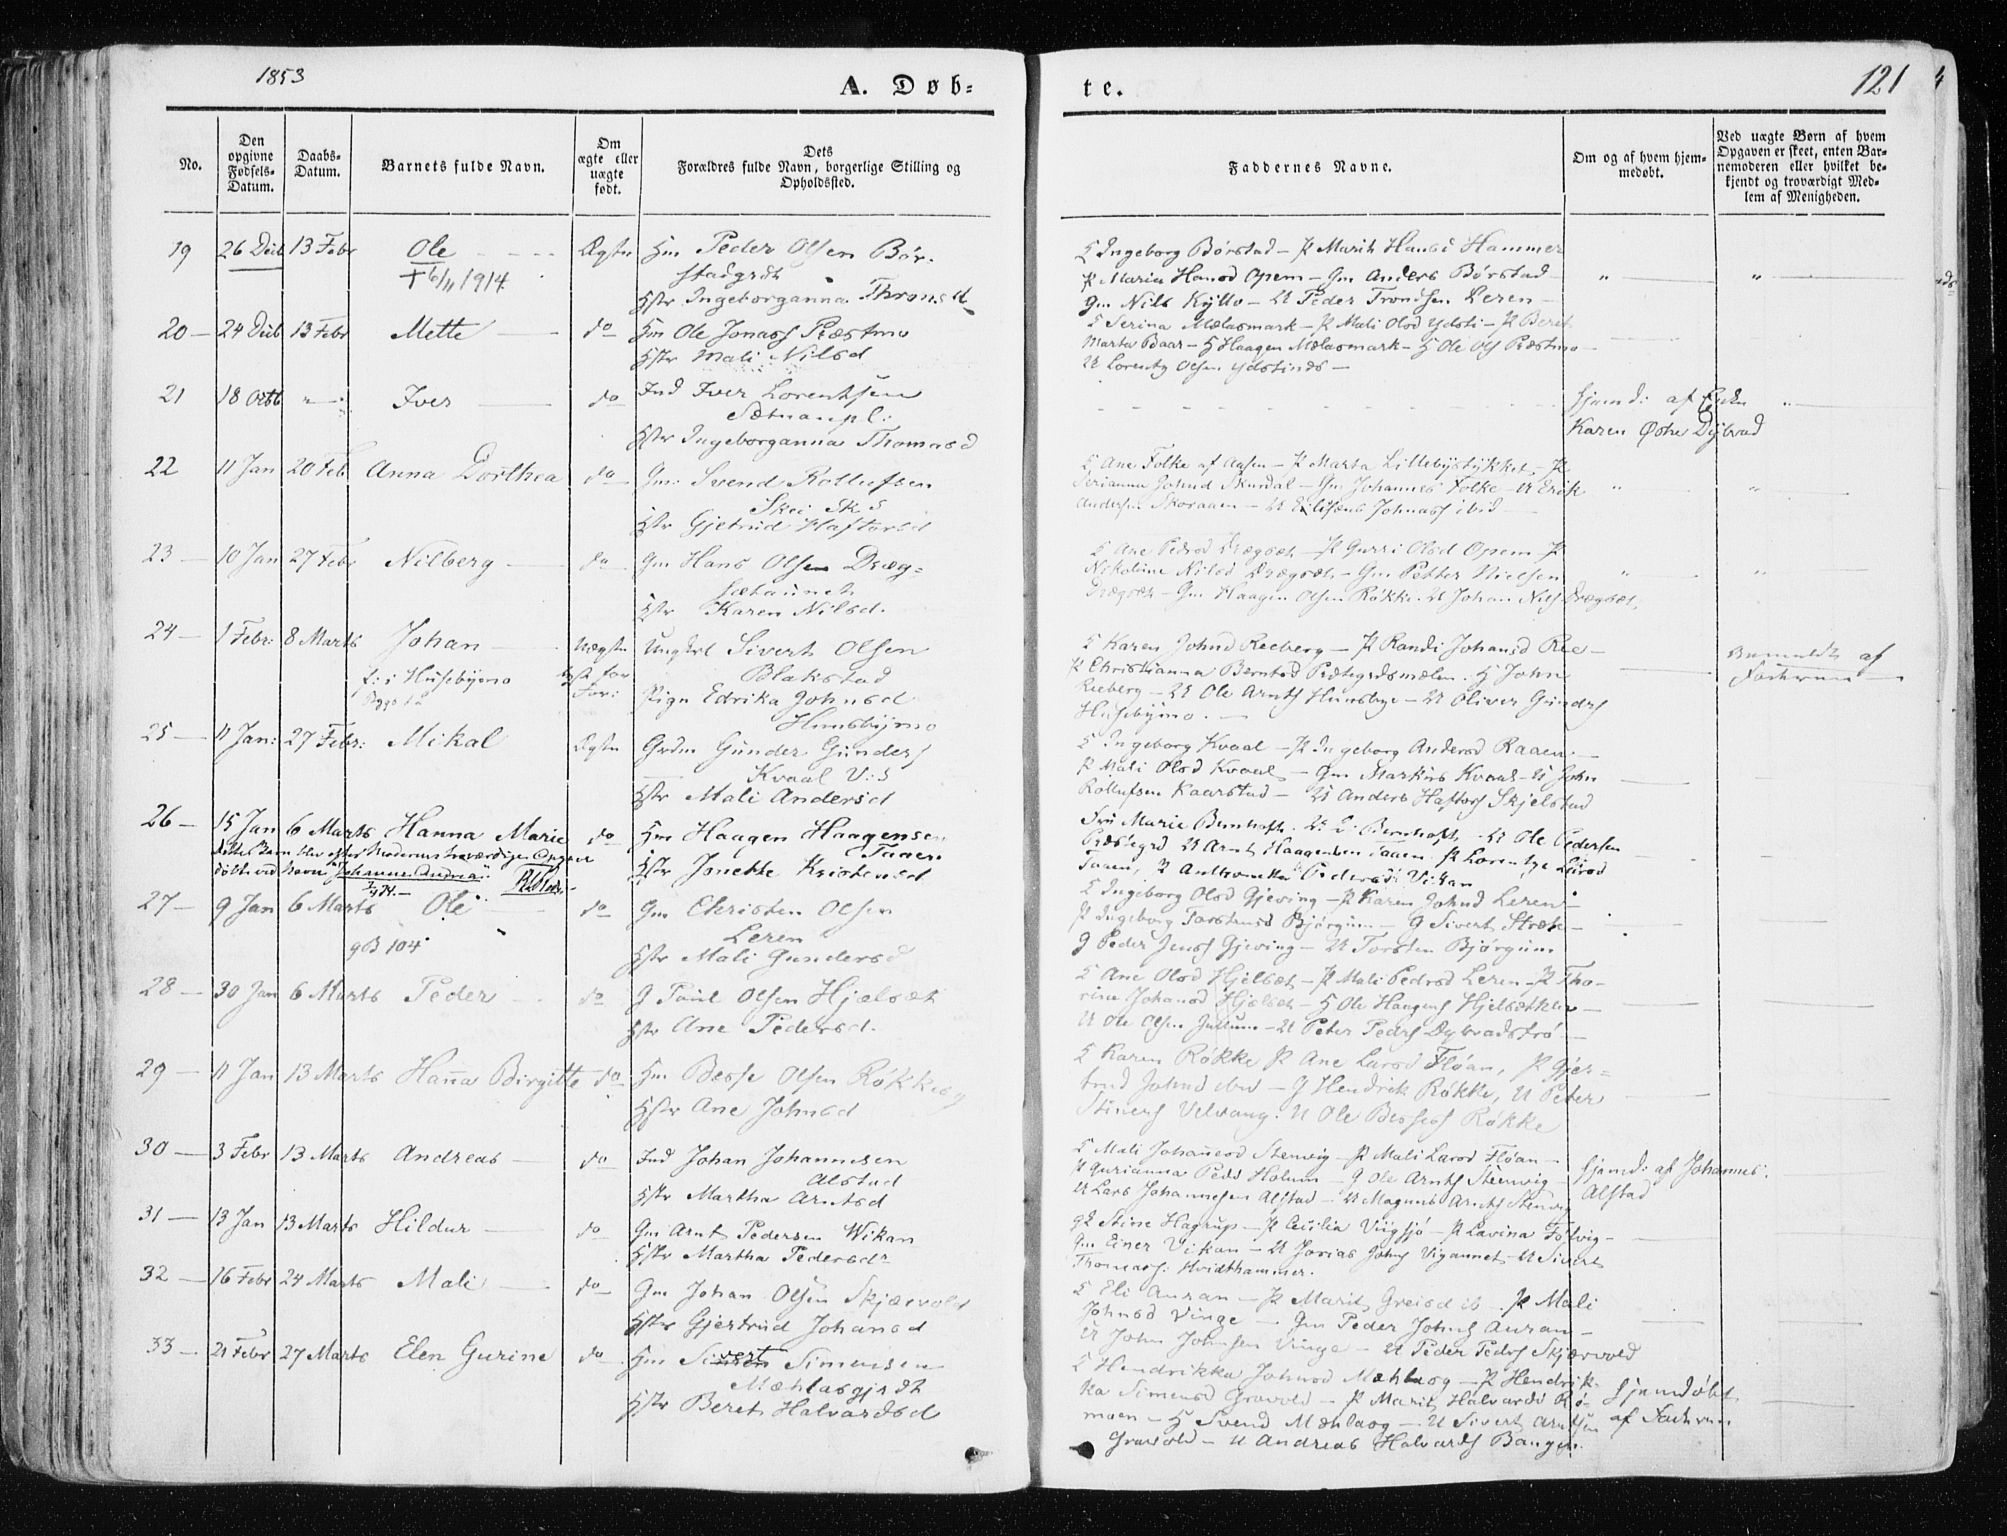 1853
A. Døb-
te.
121
No.
Den opgivne Fødsels-Datum.
Daabs-Datum.
Barnets fulde Navn.
Om ægte eller uægte født.
Dets Forældres fulde Navn, borgerlige Stilling og Opholdssted.
Faddernes Navne.
Om og af hvem hjem-medøbt.
Ved uægte Børn af hvem Opgaven er skeet, enten Bar-nemoderen eller hvilket be-kjendt og troværdigt Med-lem af Menigheden.
19 26 Decb 13 Febr Ole Ægte Hm Peder Olsen Bør-
† 6/11 1914 stadgrdt
Hstr Ingeborganna Thronsd
K Ingeborg Børstad – P Marit Hansd Hammer
P Maria Hansd Opem – Gm Anders Børstad
Gm Nils Kyllo – U Peder Trondsen Leren –
20 – 24 Decb 13 Febr Mette do Hm Ole Jonass Præstmo
Hstr Mali Nilsd
K Serina Mælasmark – P Mali Olsd Ydsti – P Beret
Marta Baar – H Haagen Mælasmark – H Ole Ols Præstmo
U Lorents Olsen Ydstinds –
21 18 Octb Iver do Ind Iver Lorentsen
Hstr Ingeborganna Thomasd
hjemd: af
Karen Dybvad
22 11 Jan 20 Feb Anna Dorthea do Gm: Svend Rollufsen
Skei SkS
Hstr Gjetrud Haftorsd
K Ane Folke af Aasen – P Marta Lillebystykket – P
Serianna Johnsd Skurdal – Gm Johannes Folke – U Erik
Andersen Skoraaen – U Johnass ibid
23 – 10 Jan 27 Febr Nilberg do Gm Hans Olsen Dræg-
Hstr Karen Nilsd.
K Ane Pedersd Drægset – P Gurri Olsd Opem P
Nikoline Nilsd Drægset – Gm Petter Nielsen
Drægset – Gm Haagen Olsen Røkke U Johan Nils Drægset,
24 – 1 Febr: 8 Marts Johan Uægte Ungkl Sivert Olsen
f: i Husebymo Blakstad
Pign Edrika Johnsd
Husebymo
K Karen Johnsd Reeberg – P Randi Johansd Ree –
P Christianna Berntsd – H John
Reeberg – U Ole Arnts Husebye – U Oliver Gunders
Husebymo. –
Anmeldt af
Faderen
25 – 11 Jan: 27 Febr: Mikal Ægte Grdm Gunder Gunders
Kvaal V:S
Hstr Mali Andersd
K Ingeborg Kvaal – P Ingeborg Andersd Raaen
P Mali Olsd Kvaal – Gm Markus Kvaal – U John
Rollufsen Kaarstad – U Anders Haftors Skjelstad
26 – 15 Jan 6 Marts Hanna Marie do Hm Haagen Haagensen
Dette Barn blev efter Moderens troværdige Opgave
døbt ved Navn Johanna Andrea
Hstr Jonette Kristensd
Fru Marie Bernhoft. U Bernhoft. U Ole Pedersen
Præstegrd U Arnt Haagensen Taaen. P Lorentze Larsd
Taaen, P Anthonetta Pedersd Vikan
27 – 9 Jan 6 Marts Ole do Gm Christen Olsen
gB 104 Leren
Hstr Mali Gundersd
K Ingeborg Olsd Gjeving – P Karen Johnsd Leren –
P Ingeborg Torstensd Bjørgum – G Sivert Stræte –
G Peder Jenss Gjeving – U Torsten Bjørgum
28 – 30 Jan 6 Marts Peder do G Paul Olsen Hjelset
Hstr Ane Pedersd.
K Ane Olsd Hjelset – P Mali Pedrsd Leren – P Tho-
rine Johansd Hjelset – H Ole Haagens Hjelsetklev –
U Ole Olsen Julsum – U Peter Peders Dybvadstrø –
29 – 11 Jan 13 Marts Hanna Birgitte do Hm Besse Olsen Røkke
Hstr Ane Johnsd
K Karen Røkke P Ane Larsd Fløan, P Gjer-
trud Johnsd ibid – G Hendrik Røkke, U Peter
Stiners Velvang. U Ole Besses Røkke
30 – 3 Febr 13 Marts Andreas do Ind Johan Johannesen
Alstad
Hstr Martha Arntsd
K Mali Johansd Stenvig – P Mali Larsd Fløan –
P Gurianna Peds Holum – G Ole Arnts Stenvig –
U Lars Johannesen Alstad – U Magnus Arnts Stenvig
hjemd: af Johannes
Alstad
31 – 13 Jan 13 Marts Hildur do Gm Arnt Pedersen Wikan
Hstr Martha Pedersdr
gK Stine Hagrup – P Cecilia Vigsjø – P Lavina Folvig –
Gm Einer Vikan – U Jonias Johns Vigannet – U Sivert
Thomass: Hvidthammer.
32 – 16 Febr 24 Marts Mali do Gm Johan Olsen Skjærvold
Hstr Gjertrud Johansd
K Eli Auran – P Marit Greisd ib – P Mali
Johnsd Vinge – Gm Peder Johns Auran –
U John Johnsen Vinge – U Peder Peders Skjærvold
33 – 21 Febr 27 Marts Elen Gurine do Hm Sivert Simonsen
Mæhlasgjrdt
Hstr Beret Halvardsd
K Hendrikka Johnsd Mæhlasg – P Hendrik-
ka Simensd Gravold – P Marit Halvards Rø-
moen – H Svend Mæhlasg – U Sivert Arntsen
Gravold – U Andreas Halvards Bangen.
hjemdøbt
af Faderen